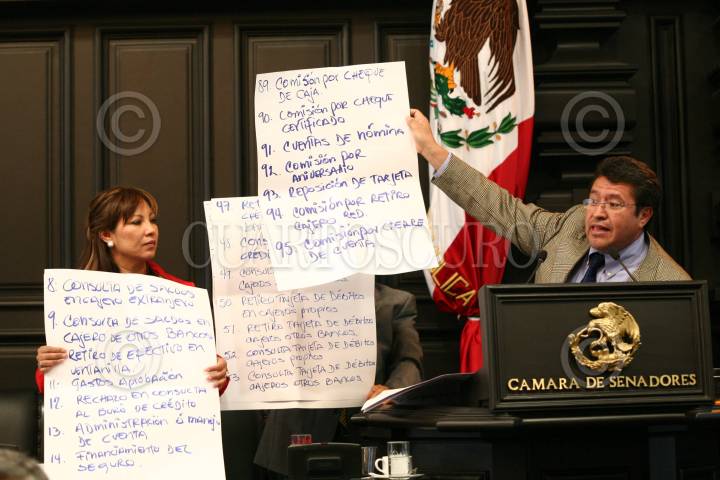 8. CONSULTA DE SALDOS
EN CAJERO EXTRANJERO
9. CONSULTA DE SALDOS EN
CAJERO DE OTROS BANCOS
RETIRO DE EFECTIVO EN
VENTANILLA
11. GASTOS APROBACIÓN
12. RECHAZO EN CONSULTA
AL BURO DE CRÉDITO
13. ADMINISTRACIÓN O MANEJO
DE CUENTA
14. FINANCIAMIENTO DEL
SEGURO
47
48
CONSU
CREDI
49 CONSULTA
50 RETIRO TARJETA DE DÉBITOS
EN CAJEROS PROPIOS
51 RETIRO TARJETA DE DÉBITOS
CAJEROS OTROS BANCOS.
52 CONSULTA TARJETA DE DÉBITOS
CAJEROS PROPIOS
53 CONSULTA TARJETA DE DÉBITOS
CAJEROS OTROS BANCOS
89. COMISIÓN POR CHEQUE
DE CAJA
90. COMISIÓN POR CHEQUE
CERTIFICADO
91. CUENTAS DE NÓMINA
92. COMISIÓN POR
ANIVERSARIO
93. REPOSICIÓN DE TARJETA
94 COMISIÓN POR RETIRO
CAJERO RED
95. COMISIÓN POR CIERRE
DE CUENTA
CÁMARA DE SENADORES
CUARTOSCURO